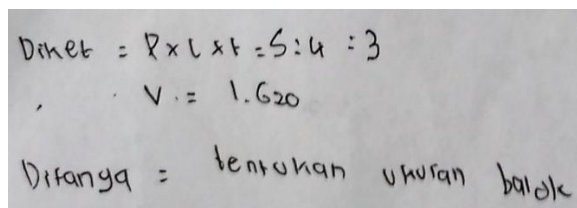 Diket = P x l x t = 5 : 4 : 3
V = 1.620
Ditanya = tentukan ukuran balok